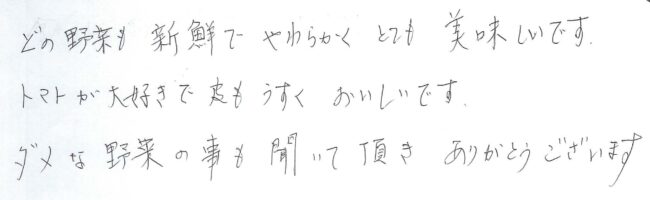 どの野菜も 新鮮で やわらかく とても 美味しいです.
トマトが大好きで 皮も うすく おいしいです.
ダメな 野菜の事も 聞いて 頂き ありがとうございます